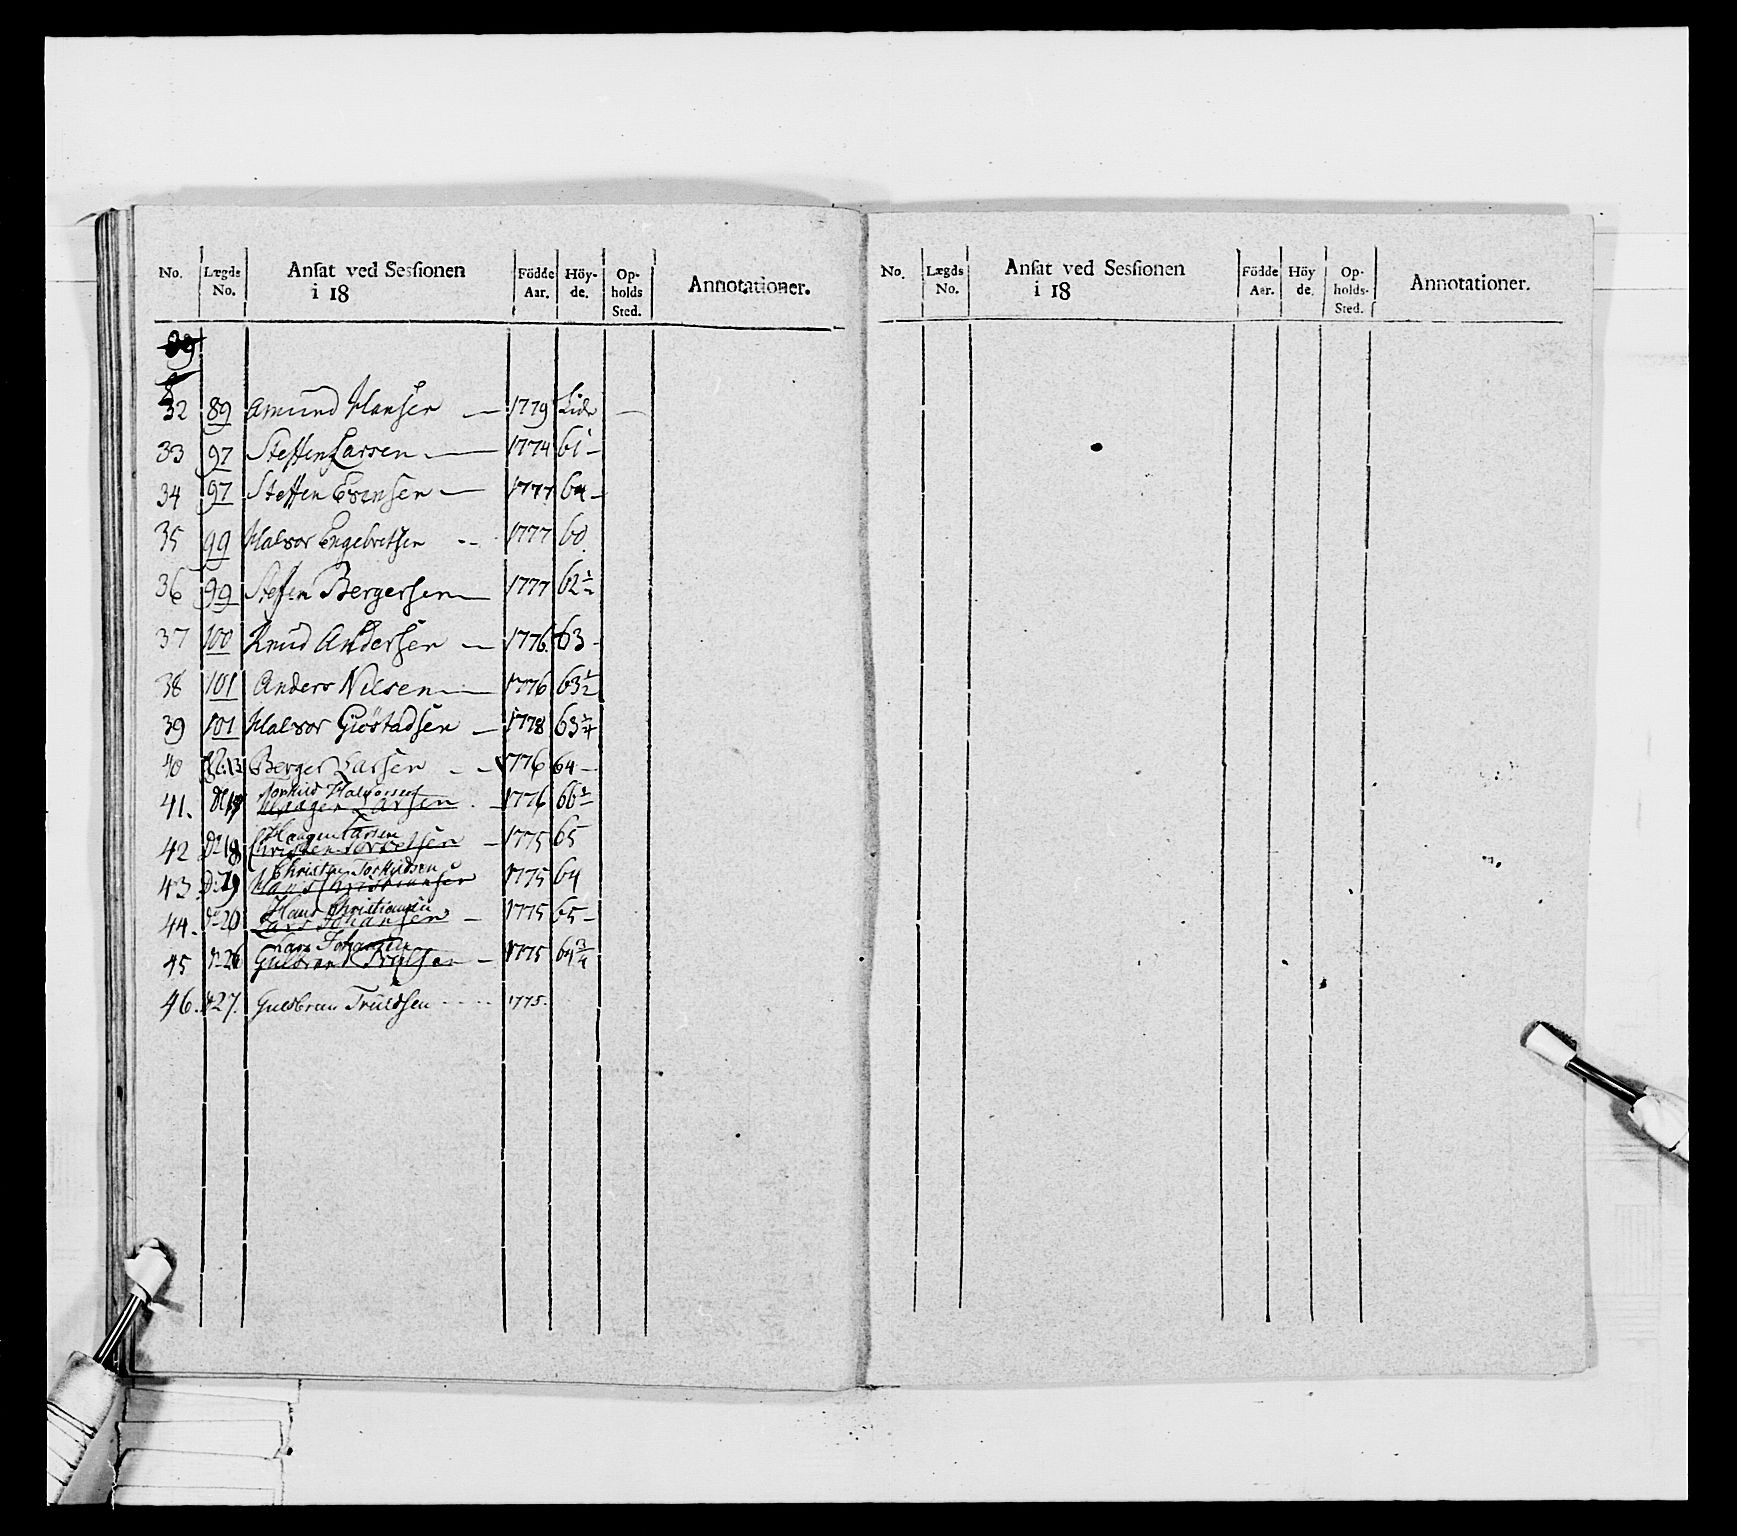 No. Lægds No. Ansat ved Sessionen i 18 Födde Aar. Höy- de. Op- holds Sted. Annotationer.
32 89 Amund Hansen — 1779 —
33 97 Steffen Larsen — 1774 61 –
34 97 Steffen Evensen — 1777 64 –
35 99 Halvor Engebretsen -- 1777 60.
36 99 Steffen Bergersen — 1777 62½
37 100 Knud Andersen — 1776. 63 –
38 101 Anders Nilsen — 1776 63½
39 101 Halvor Giöstadsen — 1778 63¼
40 Berger Larsen — 1776 64 –
Torkild Halvorsen
41. Haagen Larsen – 1776 66½
Haagen Larsen
42 Do 18 Christen – 1775 65
Christen Torkildsen
43. Do 19 Hans Christiansen 1775 64
Hans Christiansen
44. do 20 Lars Johansen – 1775 65 –
Lars Johansen
45 do 26 Gulbrand Trulsen – 1775 64¾
46. 27. Guldbran Truldsen - - - - 1775.
No. Lægds No. Ansat ved Sessionen i 18 Födde Aar. Höy de. Op- holds- Sted. Annotationer.